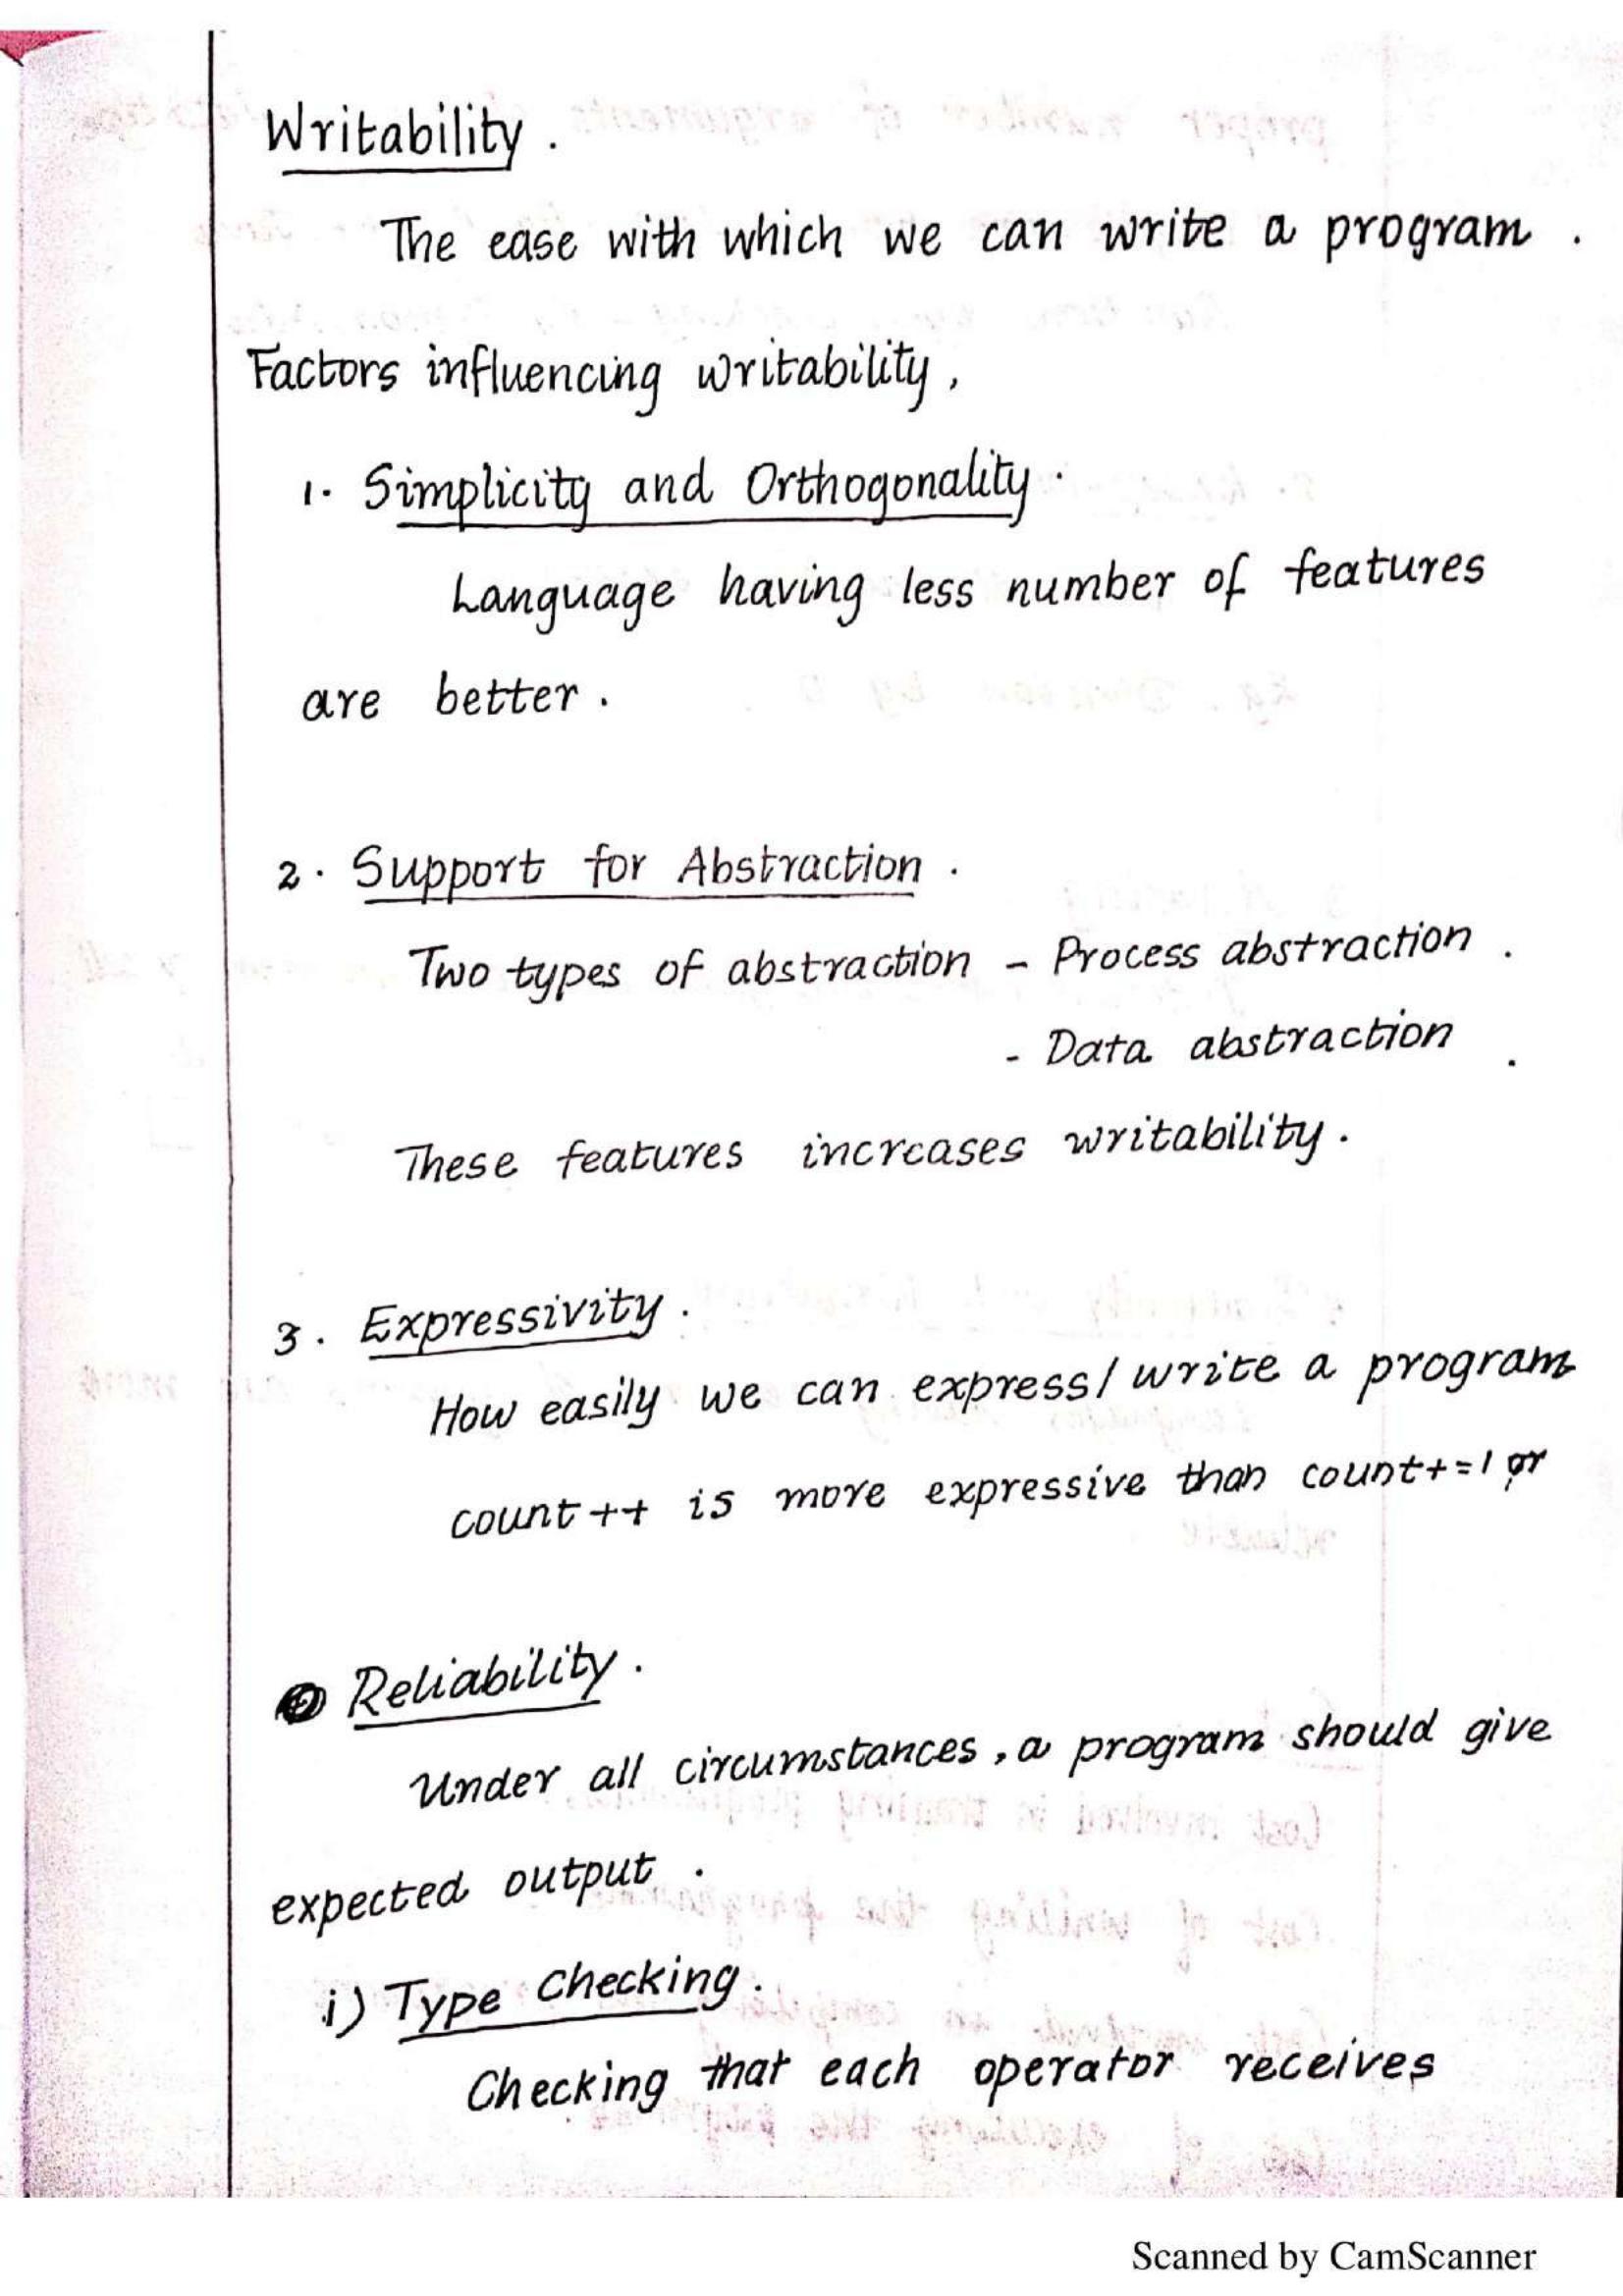 Writability .
The ease with which we can write a program .
Factors influencing writability ,
1. Simplicity and Orthogonality .
Language having less number of features
are better .
2 . Support for Abstraction .
Two types of abstraction - Process abstraction .
- Data abstraction .
These features increases writability .
3 . Expressivity .
How easily we can express / write a program
count ++ is more expressive than count+=1 or
Reliability .
Under all circumstances , a program should give
expected output .
i) Type Checking .
Checking that each operator receives
Scanned by CamScanner